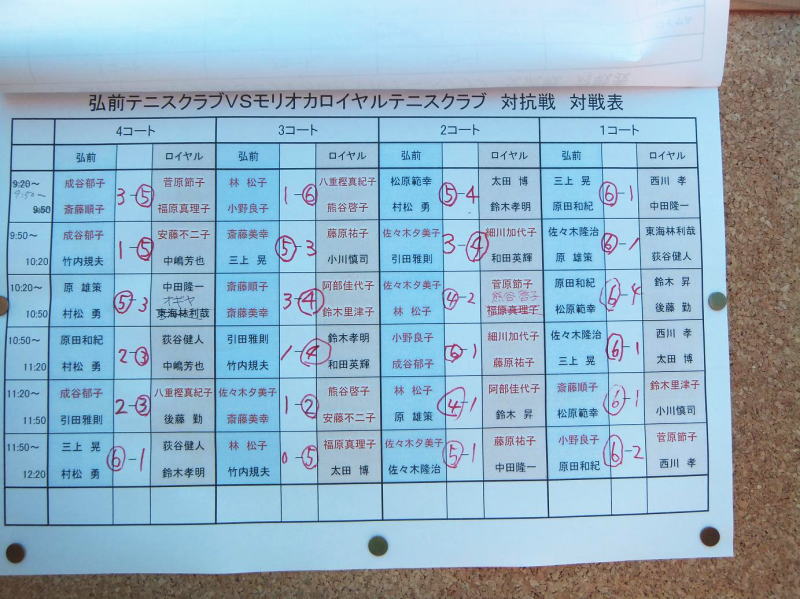 弘前テニスクラブVSモリオカロイヤルテニスクラブ 対抗戦 対戦表
4コート 3コート 2コート 1コート
弘前 ロイヤル 弘前 ロイヤル 弘前 ロイヤル 弘前 ロイヤル
9:20～ 成谷郁子 3-⑤ 菅原節子 林 松子 1-⑥ 八重樫真紀子 松原範幸 ⑤-4 太田 博 三上 晃 ⑥-1 西川 孝
9:50～
9:50 斎藤順子 福原真理子 小野良子 熊谷啓子 村松 勇 鈴木孝明 原田和紀 中田隆一
9:50～ 成谷郁子 1-⑤ 安藤不二子 斎藤美幸 ⑤-3 藤原祐子 佐々木夕美子 3-④ 細川加代子 佐々木隆治 ⑥-1 東海林利哉
10:20 竹内規夫 中嶋芳也 三上 晃 小川慎司 引田雅則 和田英輝 原 雄策 荻谷健人
10:20～ 原 雄策 ⑤-3 中田隆一 斎藤順子 3-④ 阿部佳代子 佐々木夕美子 ④-2 菅原節子 原田和紀 ⑥-4 鈴木 昇
オギヤ 熊谷啓子
10:50 村松 勇 東海林利哉 斎藤美幸 鈴木里津子 林 松子 福原真理子 松原範幸 後藤 勤
10:50～ 原田和紀 2-③ 荻谷健人 引田雅則 1-④ 鈴木孝明 小野良子 ⑥-1 細川加代子 佐々木隆治 ⑥-1 西川 孝
11:20 村松 勇 中嶋芳也 竹内規夫 和田英輝 成谷郁子 藤原祐子 三上 晃 太田 博
11:20～ 成谷郁子 2-③ 八重樫真紀子 佐々木夕美子 1-② 熊谷啓子 林 松子 ④-1 阿部佳代子 斎藤順子 ⑥-1 鈴木里津子
11:50 引田雅則 後藤 勤 斎藤美幸 安藤不二子 原 雄策 鈴木 昇 松原範幸 小川慎司
11:50～ 三上 晃 ⑥-1 荻谷健人 林 松子 0-⑤ 福原真理子 佐々木夕美子 ⑤-1 藤原祐子 小野良子 ⑥-2 菅原節子
12:20 村松 勇 鈴木孝明 竹内規夫 太田 博 佐々木隆治 中田隆一 原田和紀 西川 孝